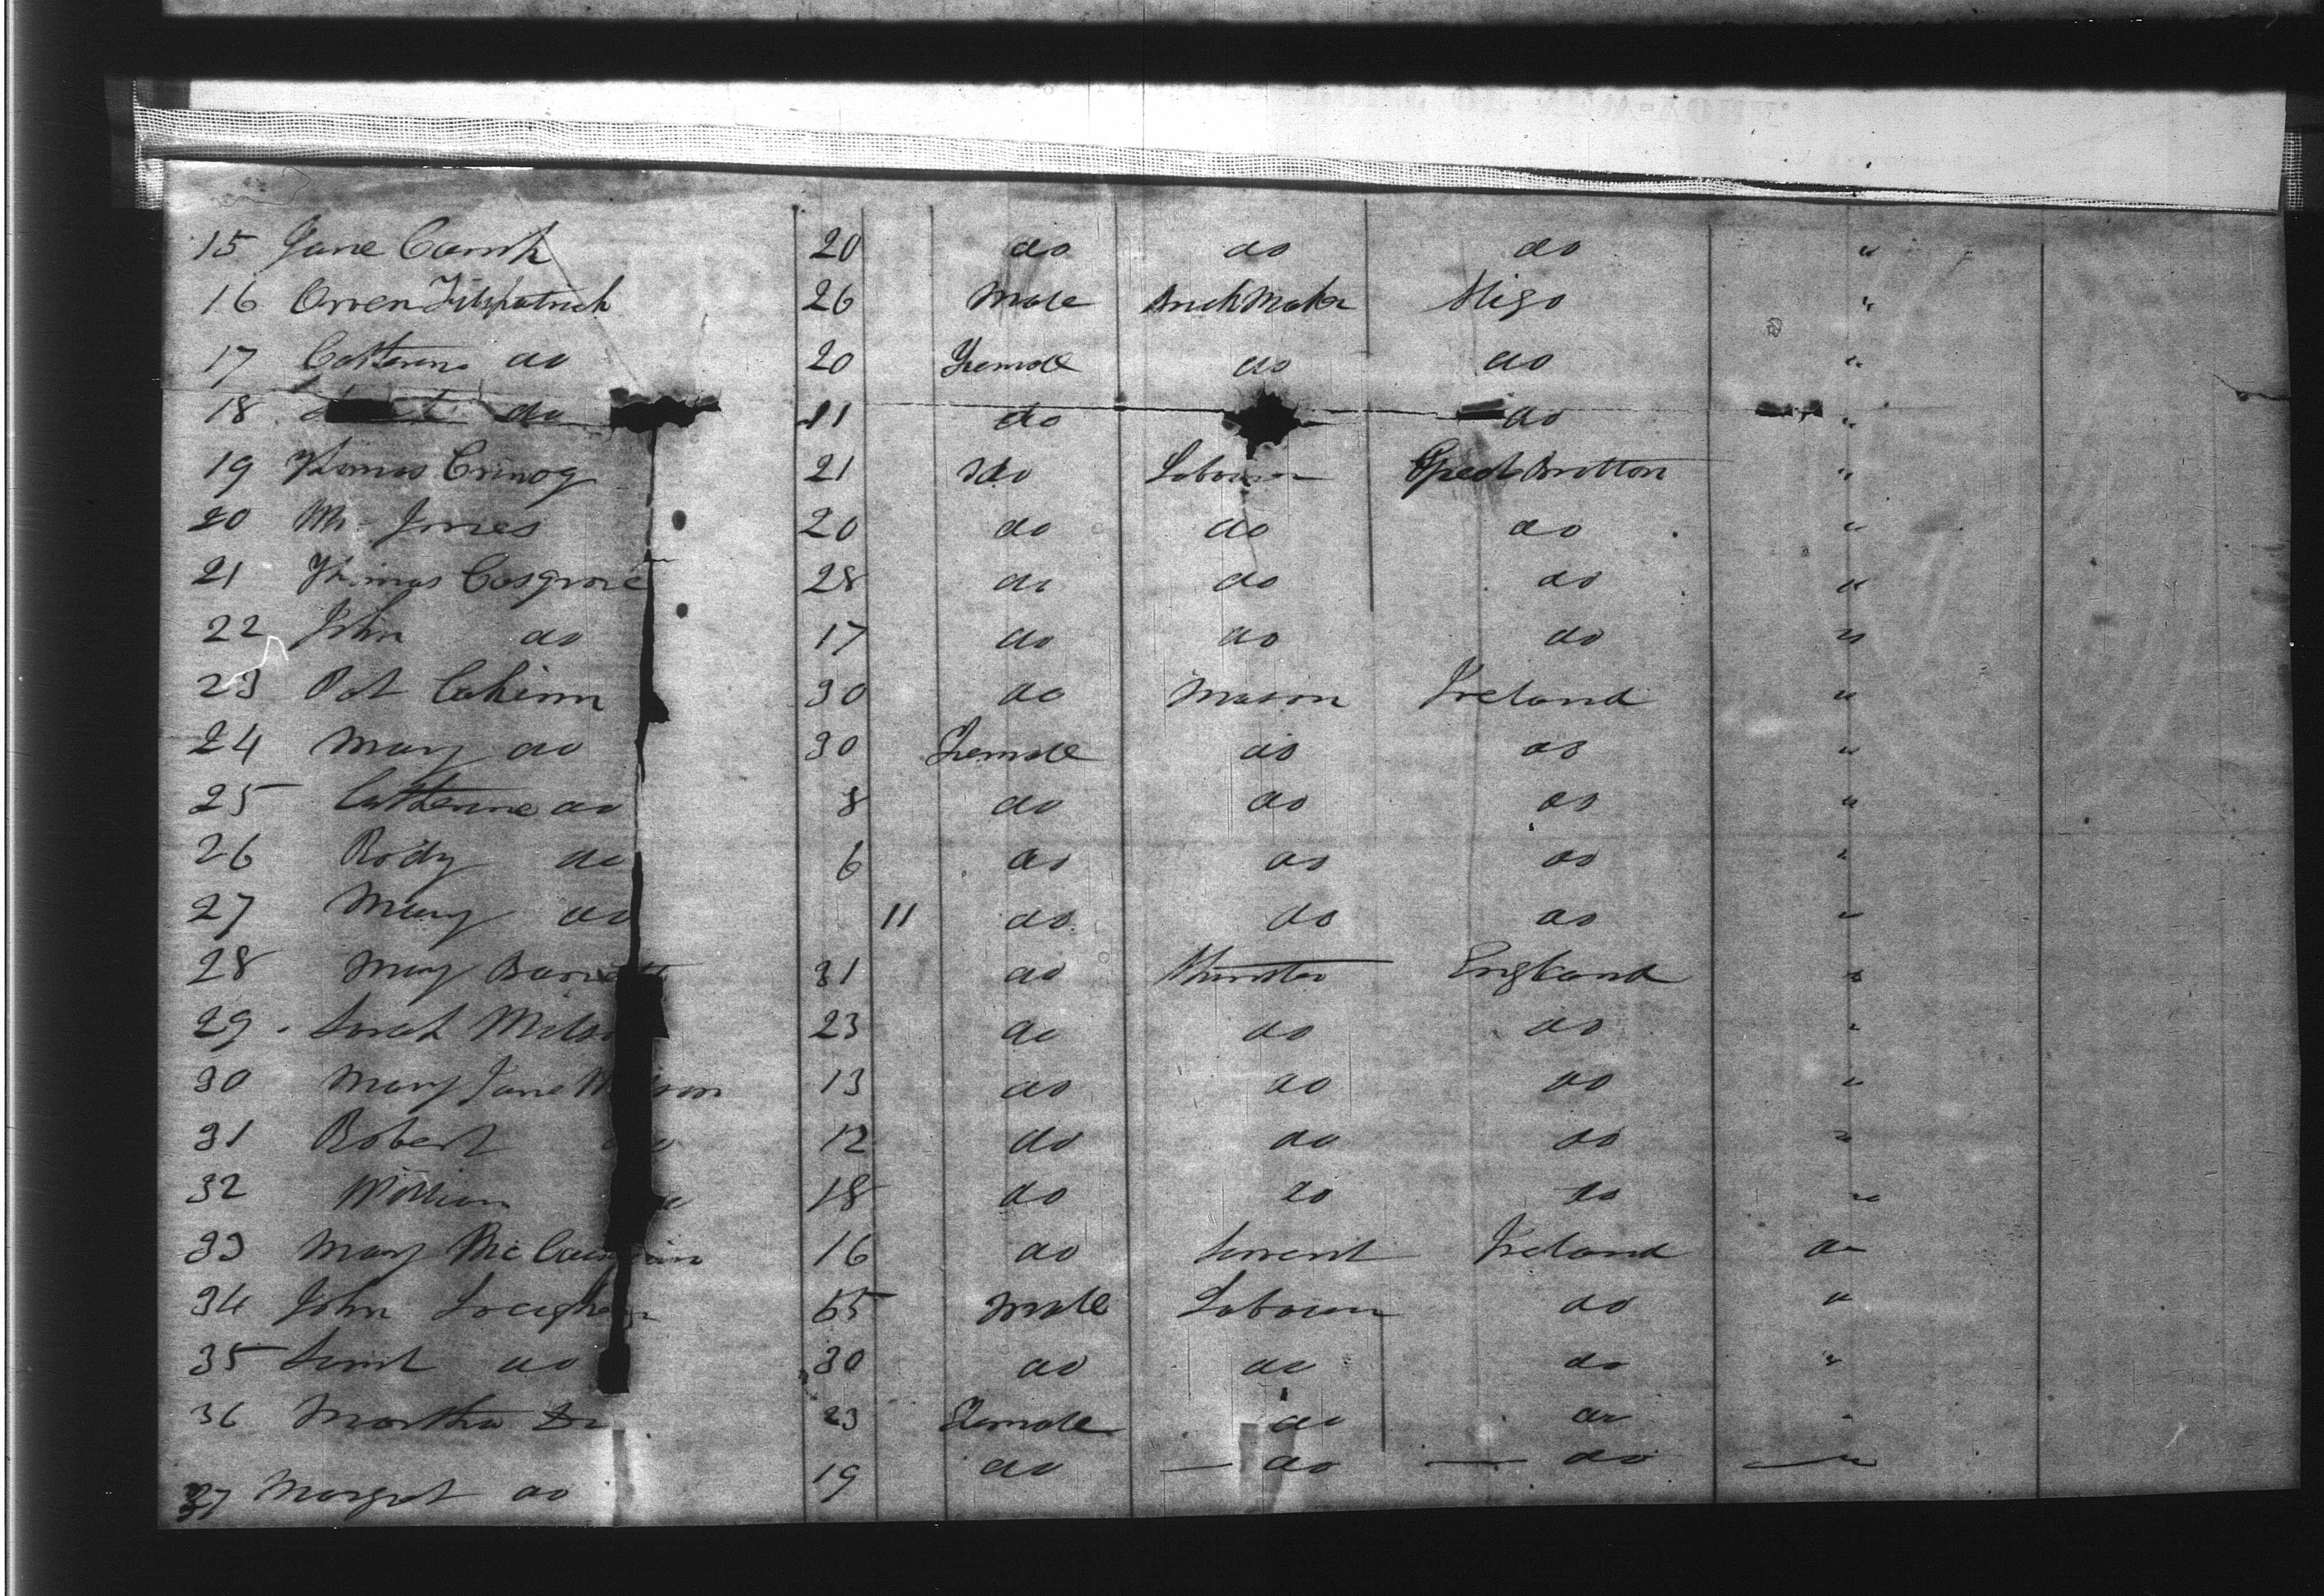 15 Jane 20 do do do "
16 Owen Fitzpatrick 26 Male Brick Maker Sligo "
17 Catterine do 20 Female do do "
18 do 11 do do "
19 Thomas 21 do Labourer Great Britton "
20 Wm Jones 20 do do do "
21 Thomas Cosgrove 28 do do do "
22 John do 17 do do do "
23 Pat 30 do Mason Ireland "
24 Mary do 30 Female do do "
25 Catterine do 8 do do do "
26 Rody do 6 do do do "
27 Mary do 11 do do do "
28 Mary 31 do England "
29 Sarah 23 do do do "
30 Mary Jane 13 do do do "
31 Robert 12 do do do "
32 William 18 do do do "
33 Mary 16 do Servent Ireland do
34 John 65 Male Labourer do "
35 do 30 do do do "
36 Martha Do 23 Female do do "
37 Margret do 19 do — do — do "